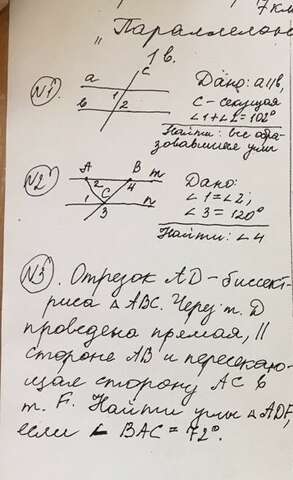 7 км
„Параллельн
1 в.
N1. a b c 1 2
Дано: a||b,
c - секущая
∠1+∠2=102°
Найти: все обра-
зовавшиеся углы
N2 A B m n 1 2 3 4 C
Дано:
∠1=∠2;
∠3=120°
Найти: ∠4
N3. Отрезок AD - биссект-
риса △ABC. Через т. D
проведена прямая, ||
стороне AB и пересекаю-
щая сторону AC в
т. F. Найти углы △ADF,
если ∠BAC = 72°.